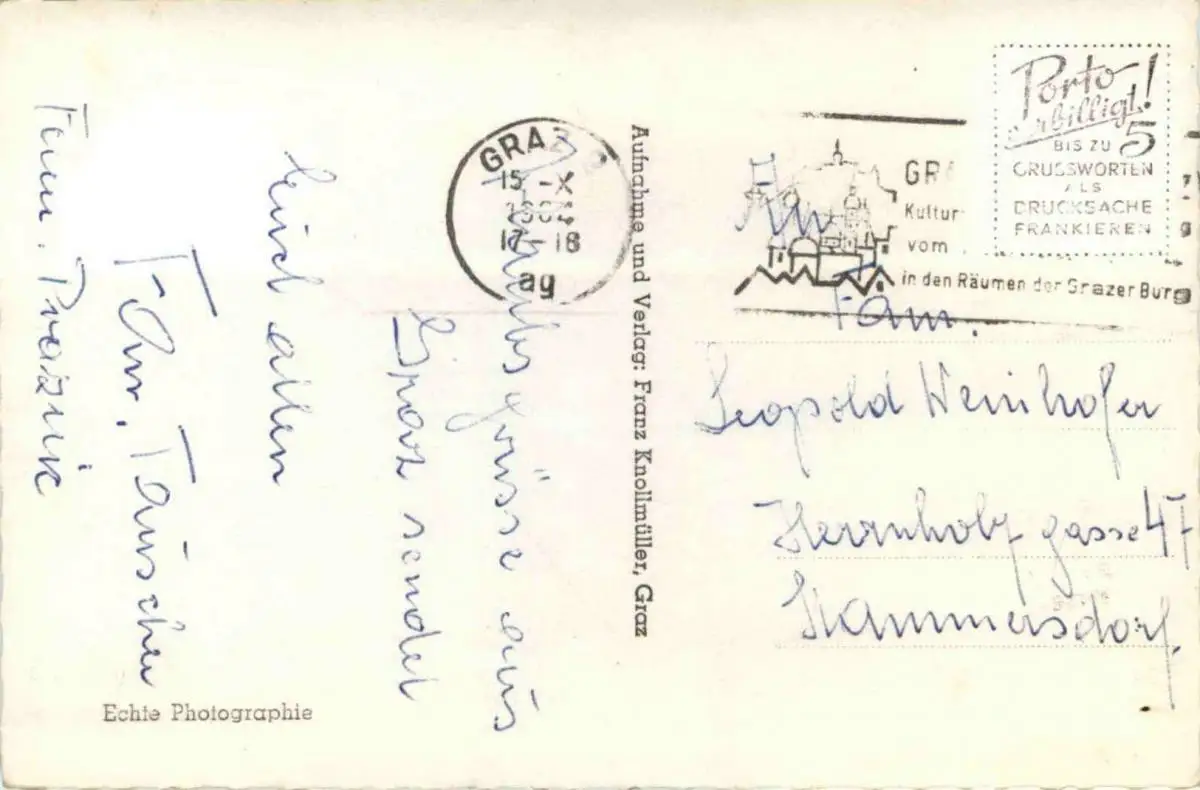 Urlaubsgrüsse aus
Graz sendet
Euch allen
Fam. Tauscher
Fam. Prasnik
Echte Photographie
GRAZ 2
15.-X
1964
17-18
ag
Aufnahme und Verlag: Franz Knollmüller, Graz
GR
Kultur
vom
in den Räumen der Grazer Burg
Porto
verbilligt!
BIS ZU 5
GRUSSWORTEN
ALS
DRUCKSACHE
FRANKIEREN
An
Fam.
Leopold Weinhofer
Herrnholzgasse 47
Stammersdorf.